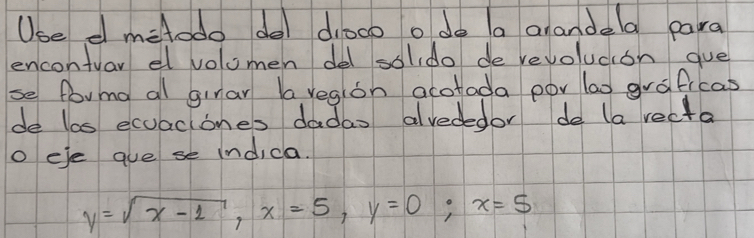 Use el método del disco o de la arandela para
encontrar el volumen del sólido de revolución que
se forma al girar la región acotada por las gráficas
de las ecuaciónes dadas alrededor de la recta
o eje que se indica.
y=√x-1, x=5, y=0; x=5